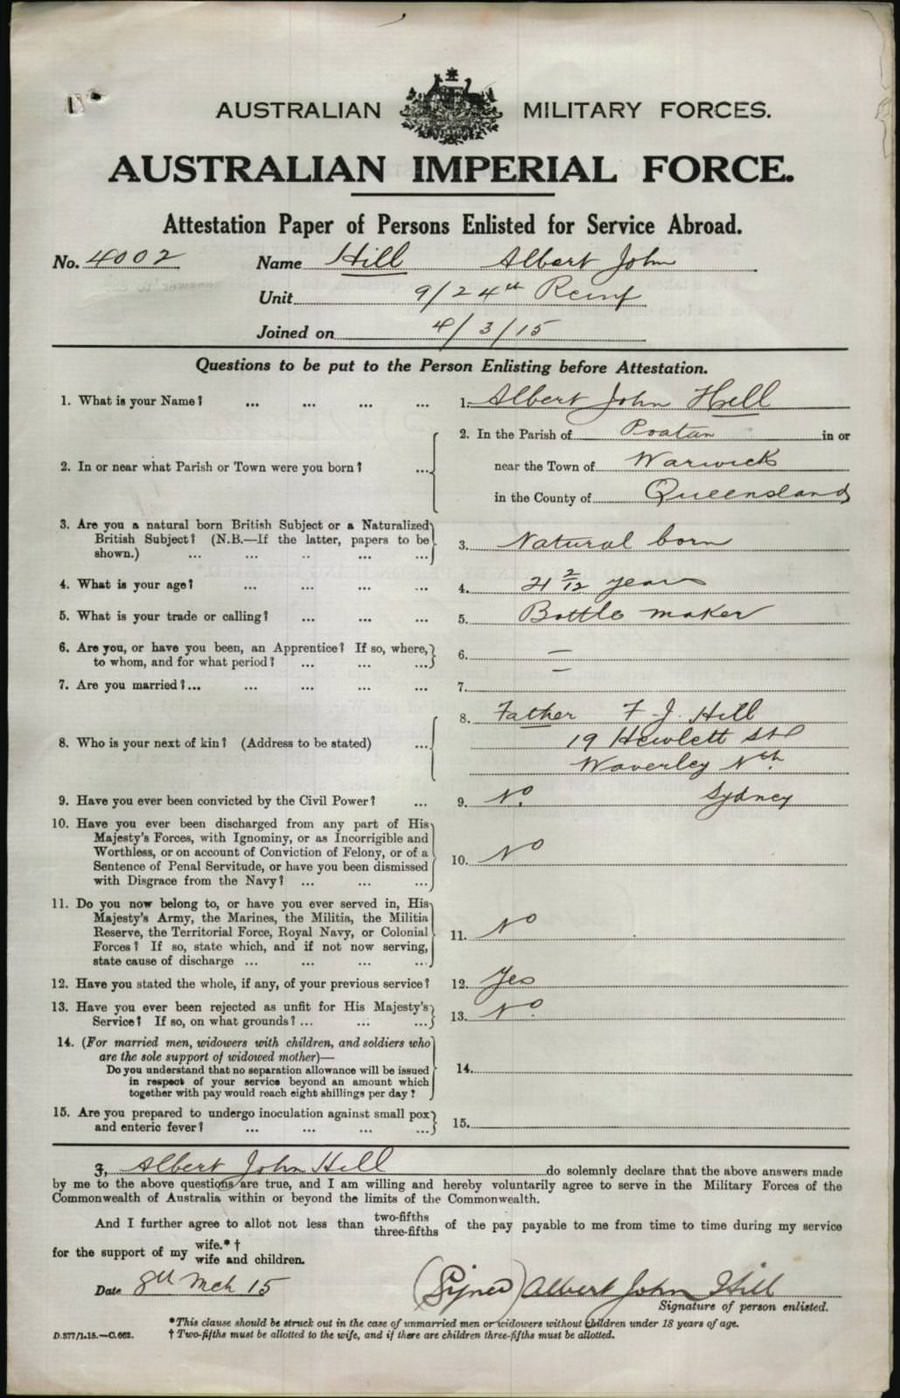 AUSTRALIAN MILITARY FORCES.
AUSTRALIAN IMPERIAL FORCE.
Attestation Paper of Persons Enlisted for Service Abroad.
No. 4002 Name Hill Albert John
Unit 9/24th Reinf
Joined on 4/3/15
Questions to be put to the Person Enlisting before Attestation.
1. What is your Name? ... ... ... ... 1. Albert John Hill
2. In or near what Parish or Town were you born? ... 2. In the Parish of in or
near the Town of Warwick
in the County of Queensland
3. Are you a natural born British Subject or a Naturalized
British Subject? (N.B.—If the latter, papers to be
shown.) ... ... .. ... ... 3. Natural born
4. What is your age? ... ... ... ... 4. 21 2/12 years
5. What is your trade or calling? ... ... ... 5. Bottle maker
6. Are you, or have you been, an Apprentice? If so, where,
to whom, and for what period? ... ... ... 6. —
7. Are you married? ... ... ... ... ... 7. —
8. Who is your next of kin? (Address to be stated) ... 8. Father F. J. Hill
19 Hewlett St
Waverley Nth.
9. Have you ever been convicted by the Civil Power? ... 9. No. Sydney
10. Have you ever been discharged from any part of His
Majesty's Forces, with Ignominy, or as Incorrigible and
Worthless, or on account of Conviction of Felony, or of a
Sentence of Penal Servitude, or have you been dismissed
with Disgrace from the Navy? ... ... ... 10. No
11. Do you now belong to, or have you ever served in, His
Majesty's Army, the Marines, the Militia, the Militia
Reserve, the Territorial Force, Royal Navy, or Colonial
Forces? If so, state which, and if not now serving,
state cause of discharge ... ... ... ... 11. No
12. Have you stated the whole, if any, of your previous service? 12. Yes
13. Have you ever been rejected as unfit for His Majesty's
Service? If so, on what grounds? ... ... ... 13. No.
14. (For married men, widowers with children, and soldiers who
are the sole support of widowed mother)—
Do you understand that no separation allowance will be issued
in respect of your service beyond an amount which
together with pay would reach eight shillings per day? 14.
15. Are you prepared to undergo inoculation against small pox
and enteric fever? ... ... ... ... 15.
I, Albert John Hill do solemnly declare that the above answers made
by me to the above questions are true, and I am willing and hereby voluntarily agree to serve in the Military Forces of the
Commonwealth of Australia within or beyond the limits of the Commonwealth.
And I further agree to allot not less than two-fifths three-fifths of the pay payable to me from time to time during my service
for the support of my wife.*† wife and children.
Date 8th Mch 15 (Signed) Albert John Hill
Signature of person enlisted.
*This clause should be struck out in the case of unmarried men or widowers without children under 18 years of age.
D.577/1.15.—C.662. † Two-fifths must be allotted to the wife, and if there are children three-fifths must be allotted.